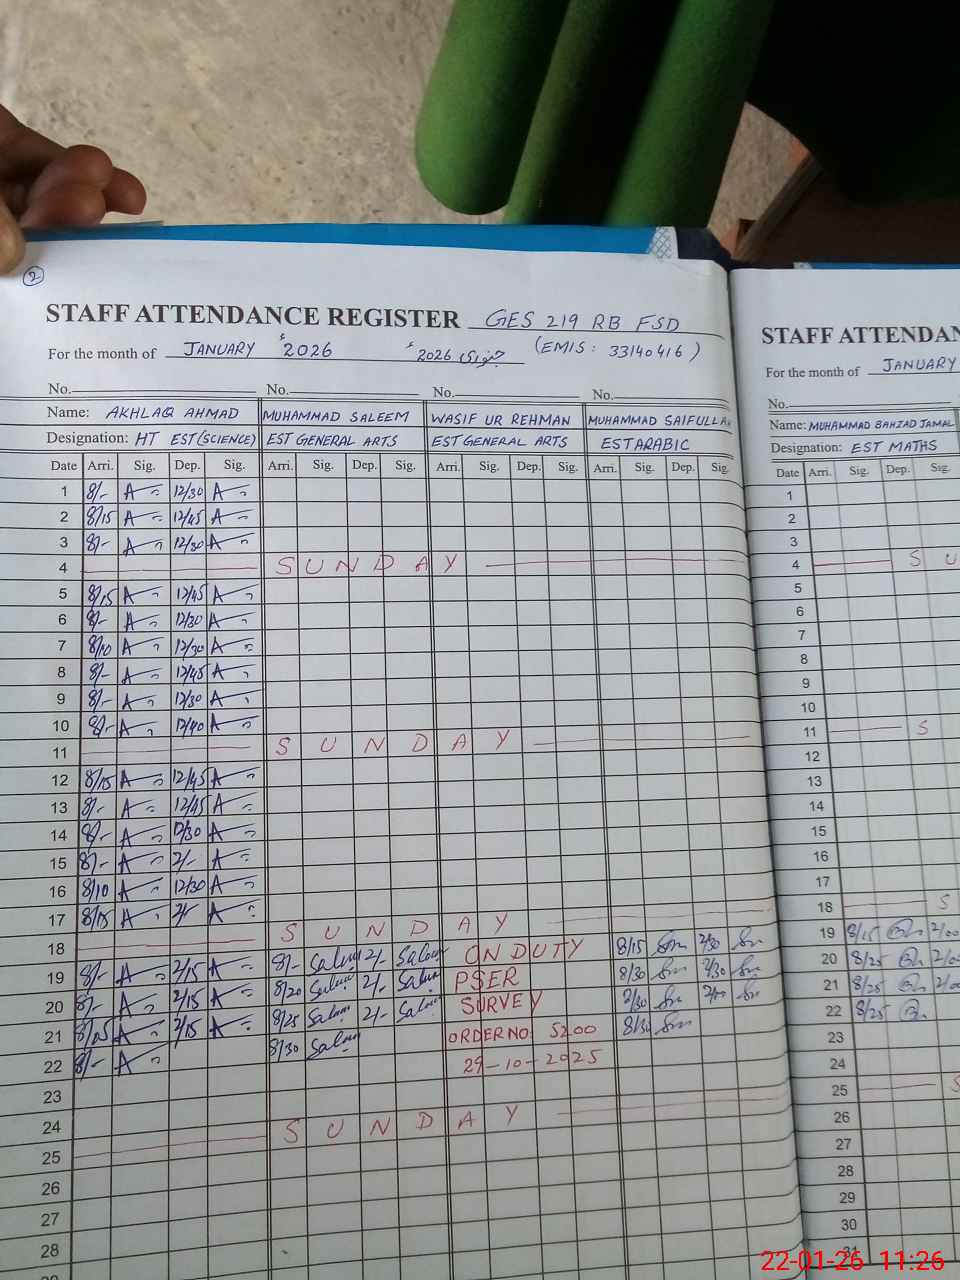 2
STAFF ATTENDANCE REGISTER GES 219 RB FSD
For the month of JANUARY 2026 جنوری 2026 (EMIS: 33140416)
No. No. No. No.
Name: AKHLAQ AHMAD MUHAMMAD SALEEM WASIF UR REHMAN MUHAMMAD SAIFULLAH
Designation: HT EST(SCIENCE) EST GENERAL ARTS EST GENERAL ARTS EST ARABIC
Date Arri. Sig. Dep. Sig. Arri. Sig. Dep. Sig. Arri. Sig. Dep. Sig. Arri. Sig. Dep. Sig.
1 8/- 12/30
2 8/15 12/45
3 8/- 12/30
4 SUNDAY
5 8/15 12/45
6 8/- 12/30
7 8/10 12/30
8 8/- 12/45
9 8/- 12/30
10 8/- 12/40
11 SUNDAY
12 8/15 12/45
13 8/- 12/45
14 8/- 12/30
15 8/- 2/-
16 8/10 12/30
17 8/15
18 SUNDAY
19 8/- 2/15 8/- Saleem 2/- Saleem ON DUTY 8/15 2/30
20 8/- 2/15 8/20 Saleem 2/- Saleem PSER 8/30 2/30
21 8/25 2/15 8/25 Saleem 2/- Saleem SURVEY
22 8/- 8/30 Saleem ORDER NO: 5200 8/30
23 29-10-2025
24
25 SUNDAY
26
27
28
STAFF ATTENDAN
For the month of JANUARY
No.
Name: MUHAMMAD BAHZAD JAMAL
Designation: EST MATHS
Date Arri. Sig. Dep. Sig.
1
2
3
4 S U
5
6
7
8
9
10
11 S
12
13
14
15
16
17
18 S
19 8/15 2/00
20 8/25 2/00
21 8/25 2/00
22 8/25
23
24
25 S
26
27
28
29
30
31
22-01-26 11:26